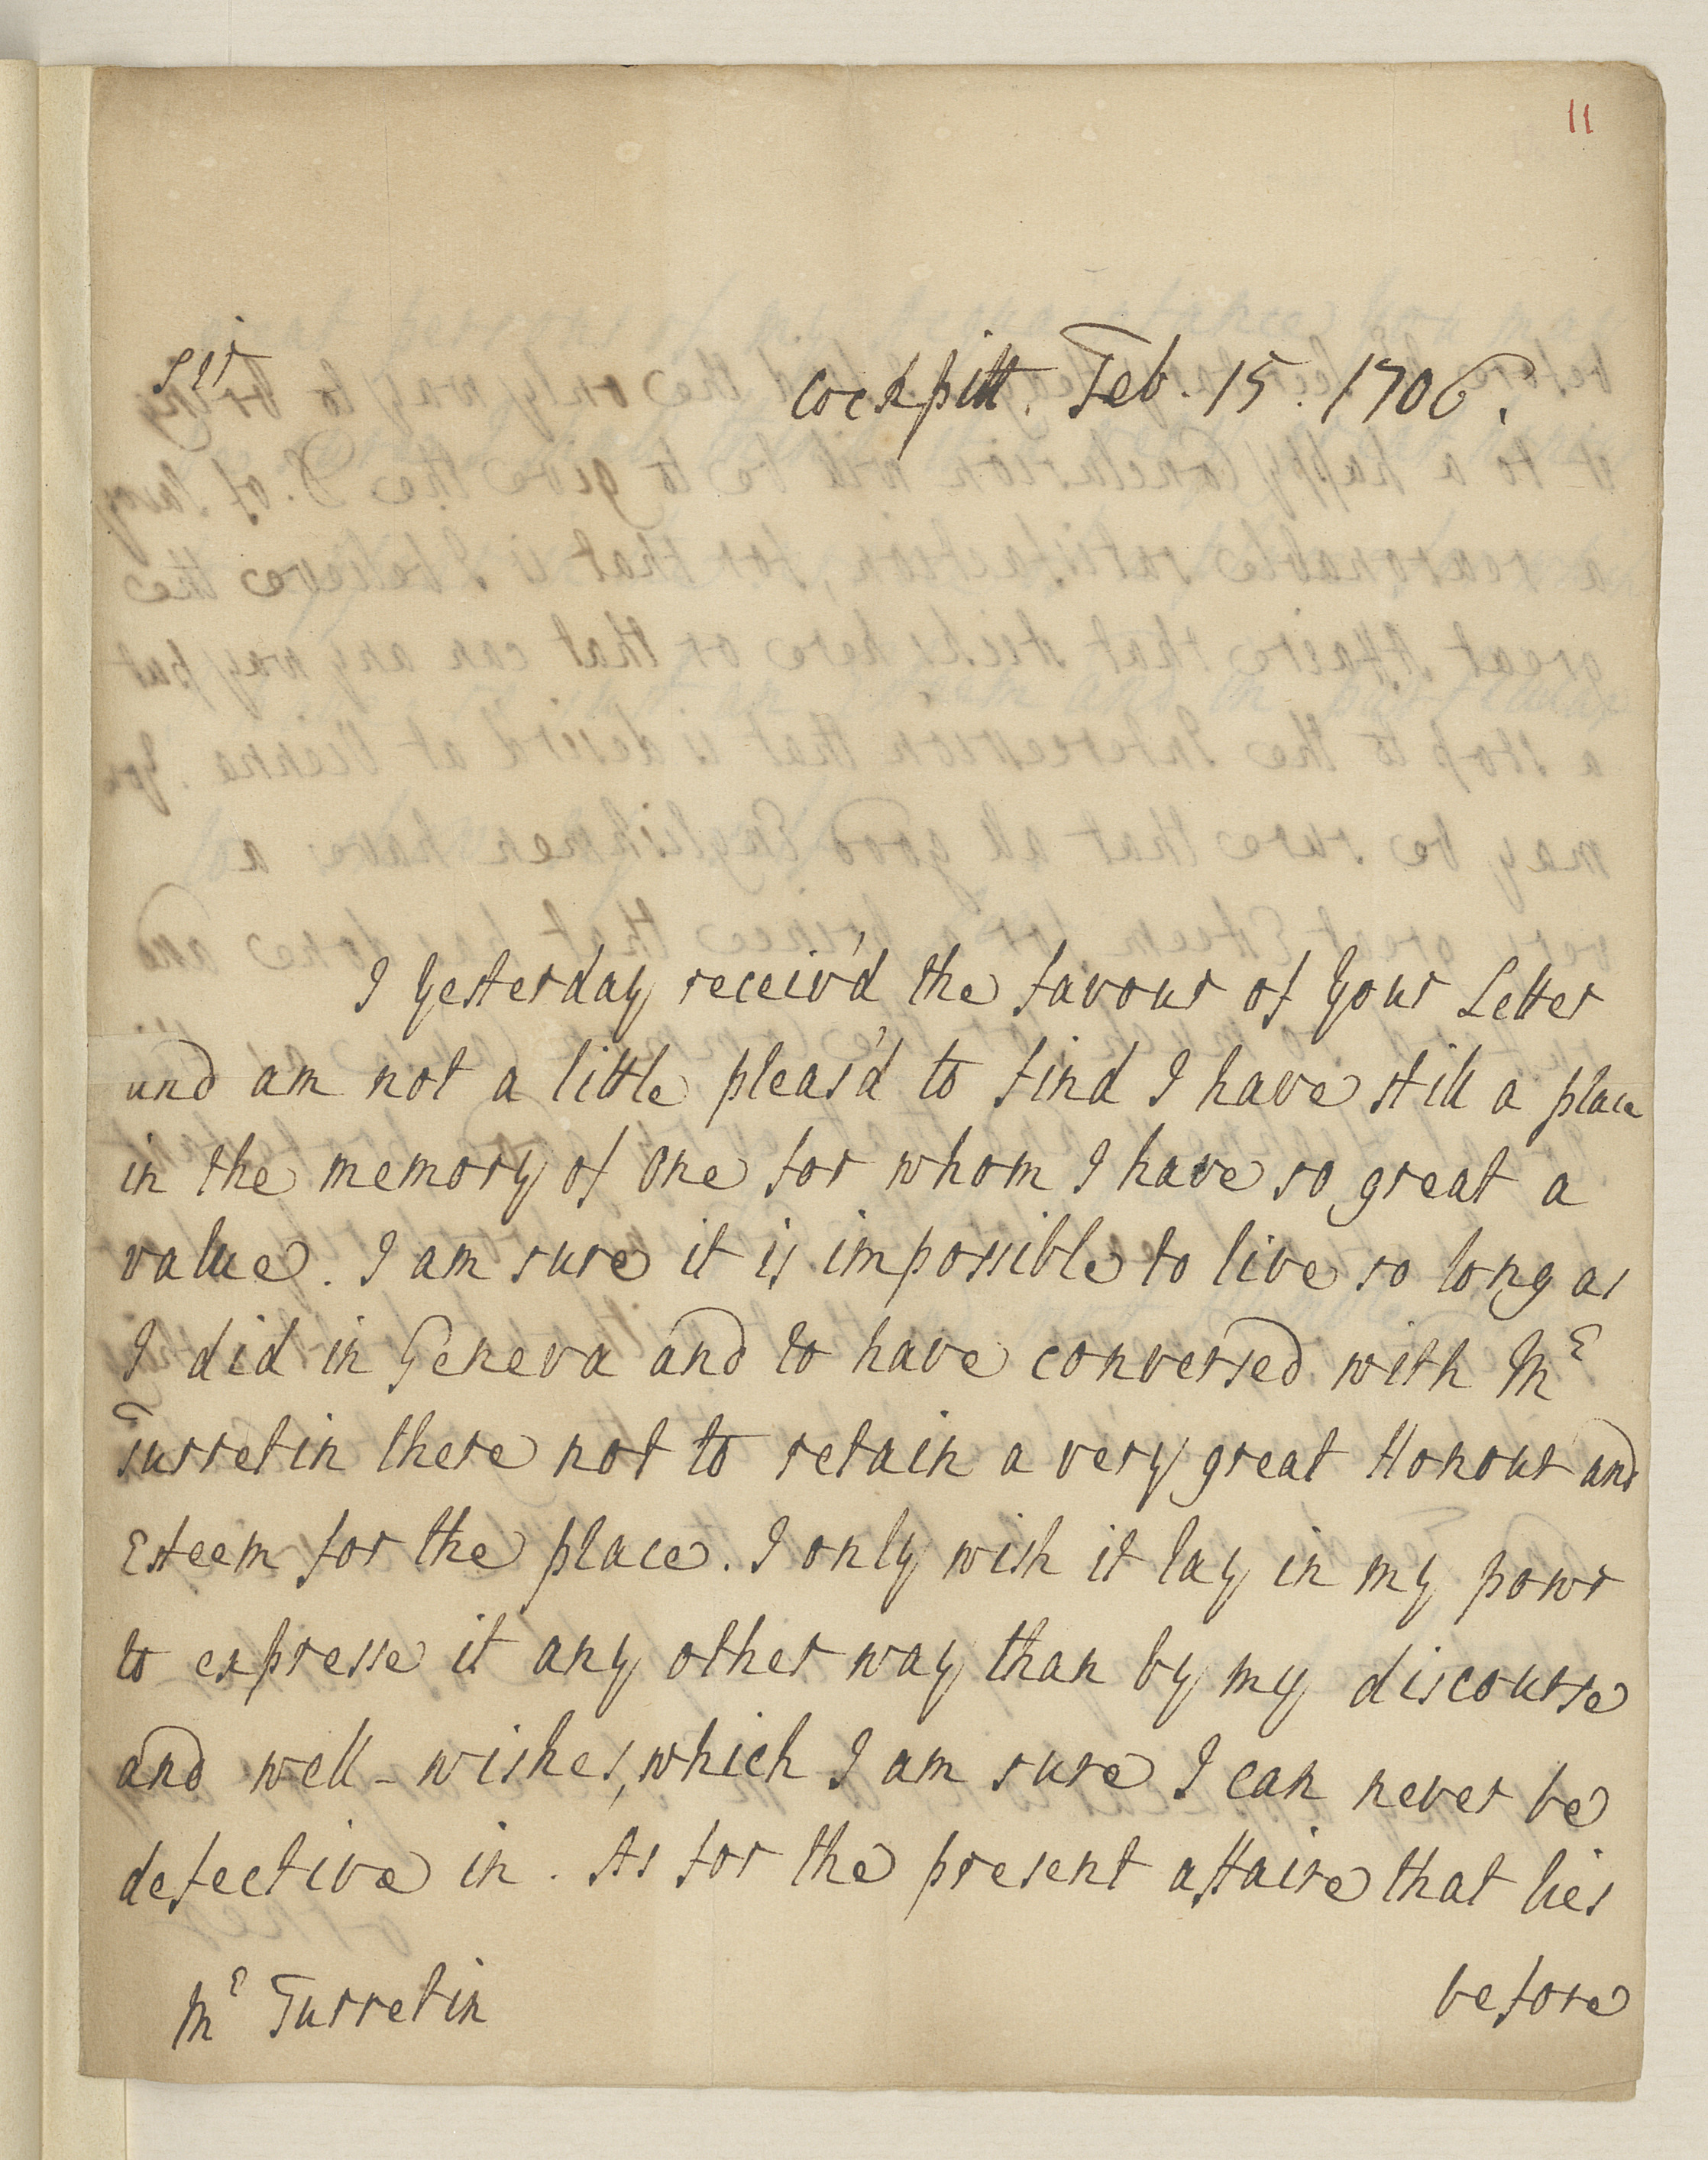 11
Sir
Cockpitt. Feb. 15. 1706.
I Yesterday receiv'd the favour of Your Letter
and am not a little pleas'd to find I have still a place
in the memory of One for whom I have so great a
value. I am sure it is impossible to live so long as
I did in Geneva and to have conversed with Mr
Turretin there not to retain a very great Honour and
Esteem for the place. I only wish it lay in my powr
to expresse it any other way than by my discourse
and well-wishes, which I am sure I can never be
defective in. As for the present affaire that lies
before
Mr Turretin